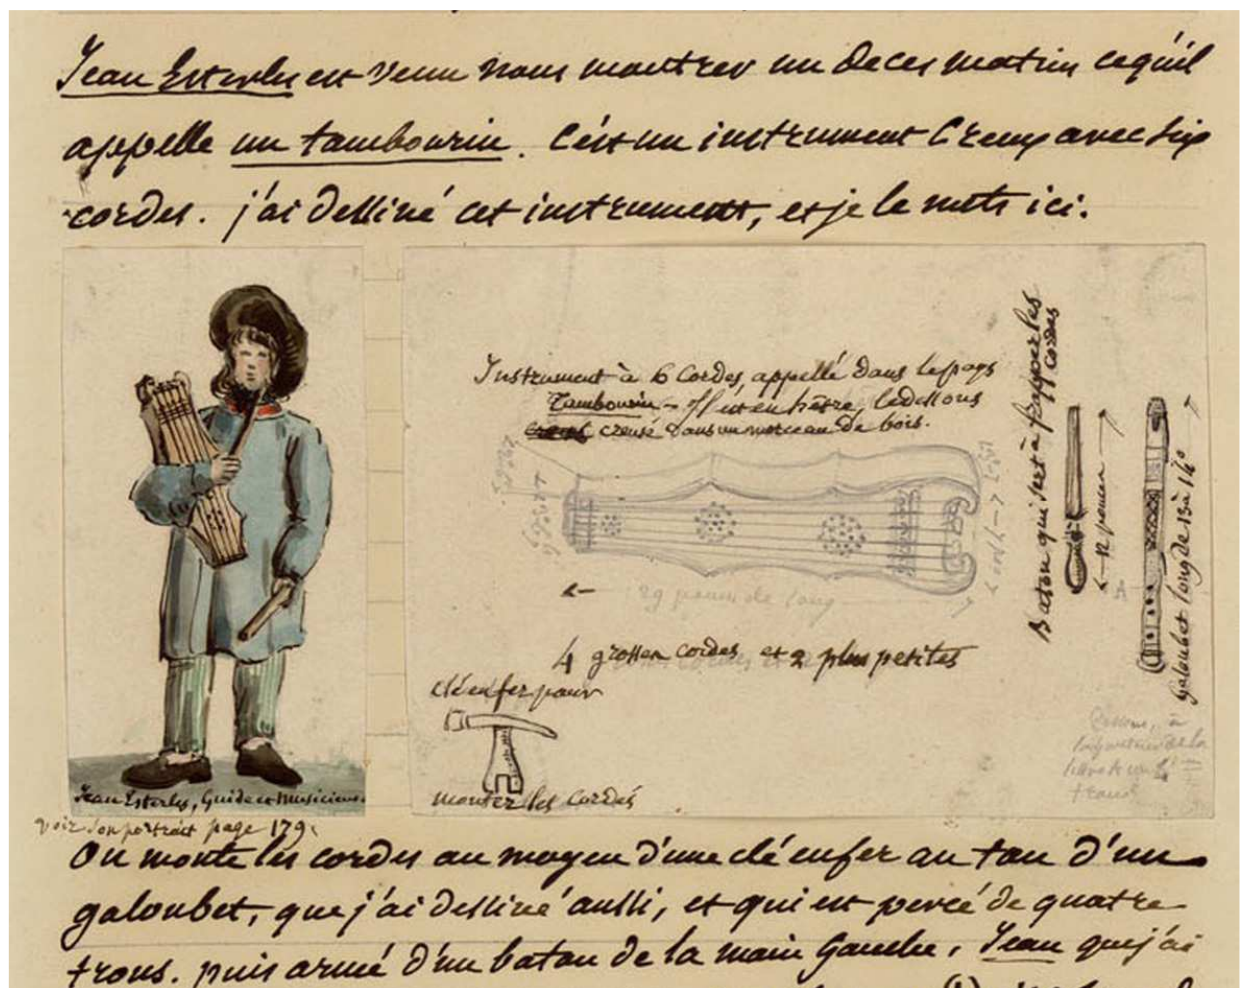 Jean Esterles est venu nous montrer un de ces matins ce qu'il
appelle un tambourin. C'est un instrument Creux avec six
cordes. j'ai dessiné cet instrument, et je le mets ici.
Instrument à 6 Cordes, appellé dans le pays
Tambourin - Il est en hêtre, le dessous
creusé dans un morceau de bois.
29 pouces de long
4 grosses cordes et 2 plus petites
clé en fer pour
monter les cordes
Baton qui sert à frapper les
cordes
12 pouces
A
galoubet long de 13 à 14°
Jean Esterles, Guide et Musicien.
voir son portrait page 179.
On monte les cordes au moyen d'une clé en fer au ton d'un
galoubet, que j'ai dessiné aussi, et qui est percé de quatre
trous. puis armé d'un baton de la main Gauche, Jean que j'ai